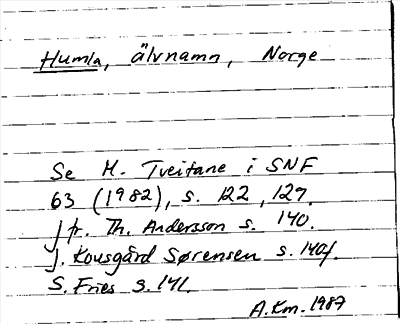 Humla, älvnamn, Norge
Se M. Tveitane i SNF
63 (1982), s. 122, 127.
Jfr. Th. Andersson s. 140.
J. Kousgård Sørensen s. 140f.
S. Fries s. 141.
A.Km. 1987